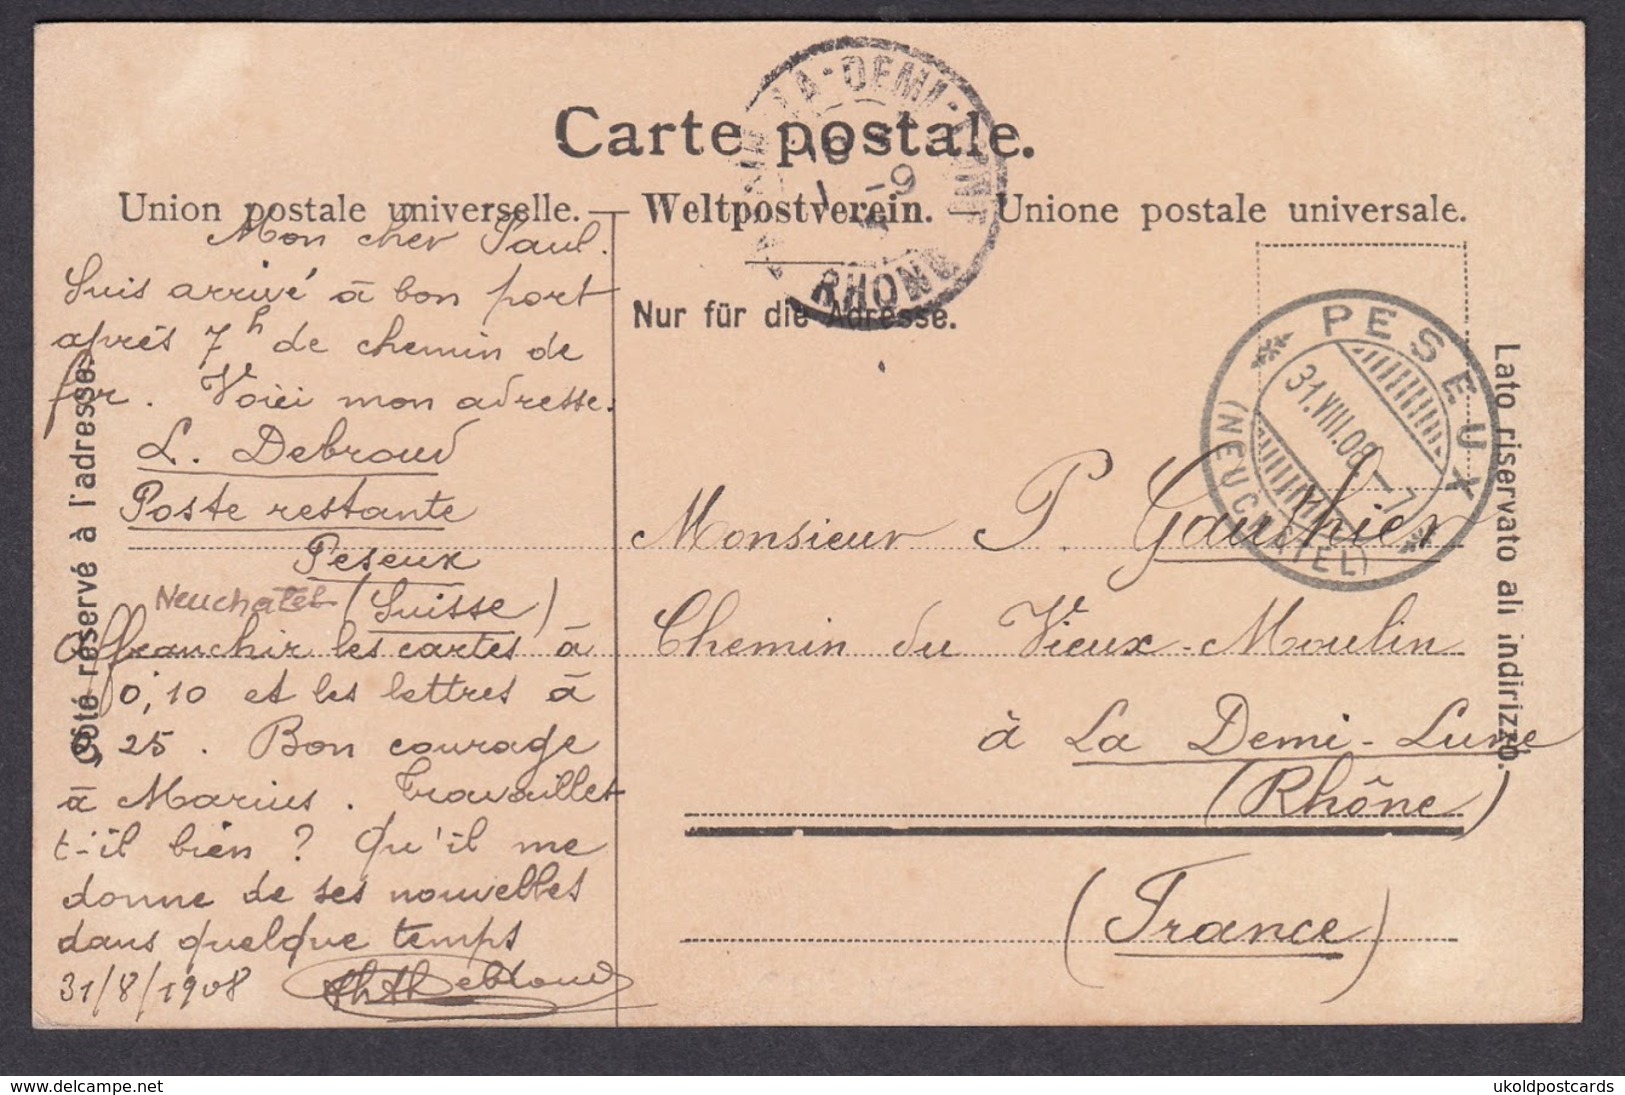 Carte postale.
Union postale universelle. — Weltpostverein. — Unione postale universale.
Nur für die Adresse.
Côté réservé à l'adresse.
Lato riservato all indirizzo.
Mon cher Paul.
Suis arrivé à bon port
après 7h de chemin de
fer. Voici mon adresse.
L. Debroud
Poste restante
Peseux
Neuchatel (Suisse)
Affranchir les cartes à
0,10 et les lettres à
25. Bon courage
à Marius. Travaillet
t-il bien ? Qu'il me
donne de ses nouvelles
dans quelque temps
31/8/1908
Monsieur P. Gauthier
Chemin du Vieux-Moulin
à La Demi-Lune
(Rhône)
(France)
PESEUX
31.VIII.08-7
(NEUCHATEL)
LA-DEMI-LUNE
-9
RHONE
www.delcampe.net
ukoldpostcards